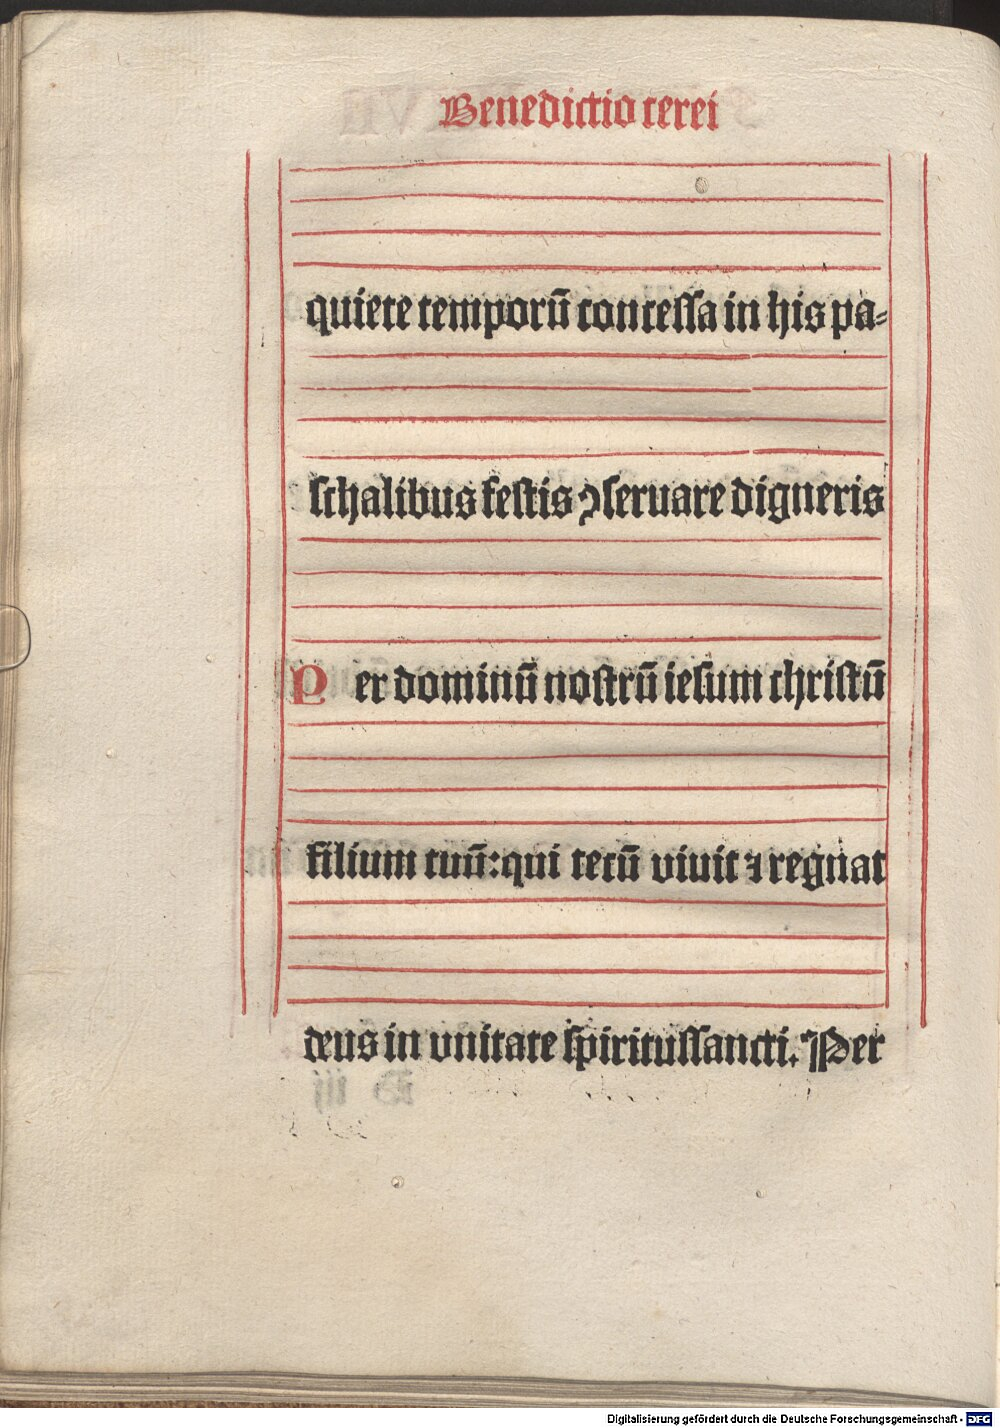 Benedictio cerei
quiete temporū concessa in his pa⸗
schalibus festis ꝯseruare digneris
Per dominū nostrū iesum christū
filium tuū: qui tecū viuit ⁊ regnat
deus in vnitate spiritussancti. Per
Digitalisierung gefördert durch die Deutsche Forschungsgemeinschaft - DFG